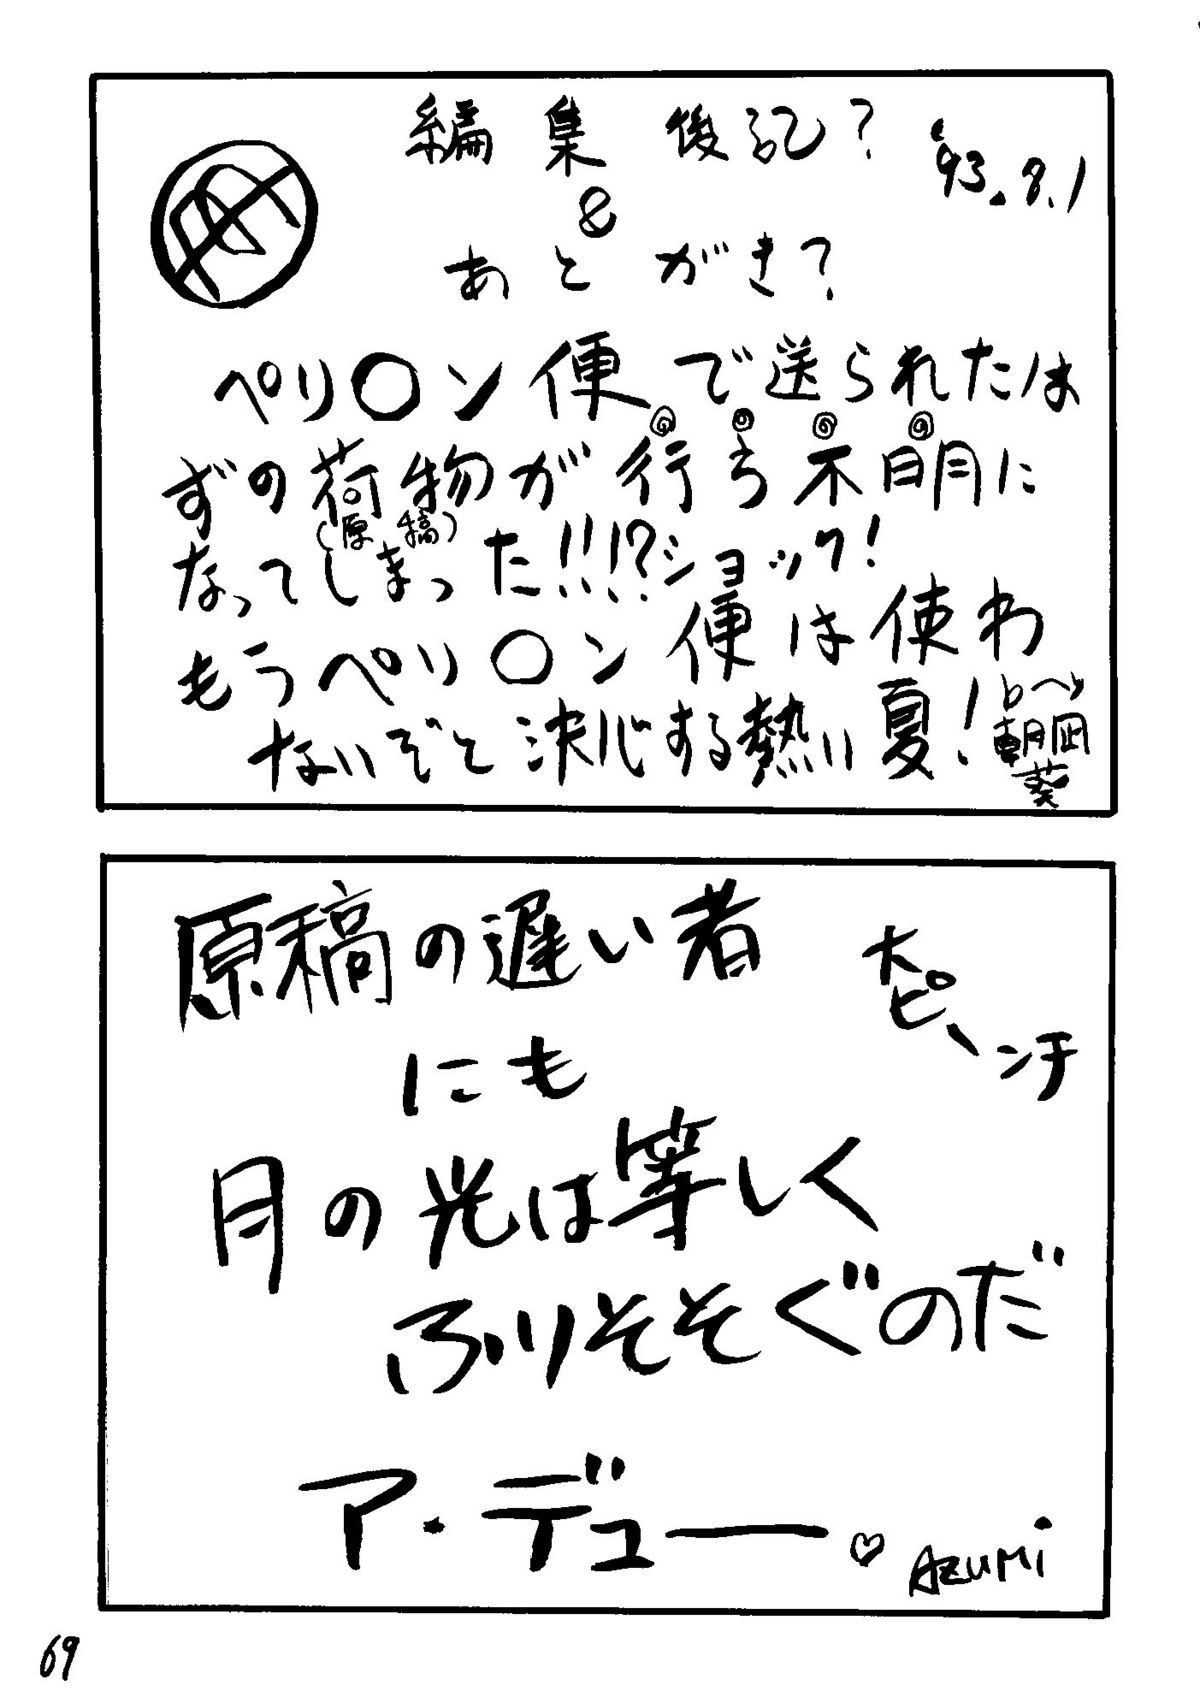 編集後記? '93.8.1
&
あとがき?
ペリ○ン便で送られたは
ずの荷物が行ち不明に
(原稿)
なってしまった!!!?ショック!
もうペリ○ン便は使わ
ないぞと決心する熱い夏!
朝凪
葵
原稿の遅い者
にも
月の光は等しく
ふりそそぐのだ
ピンチ
ア・デュー♡
AZUMi
69